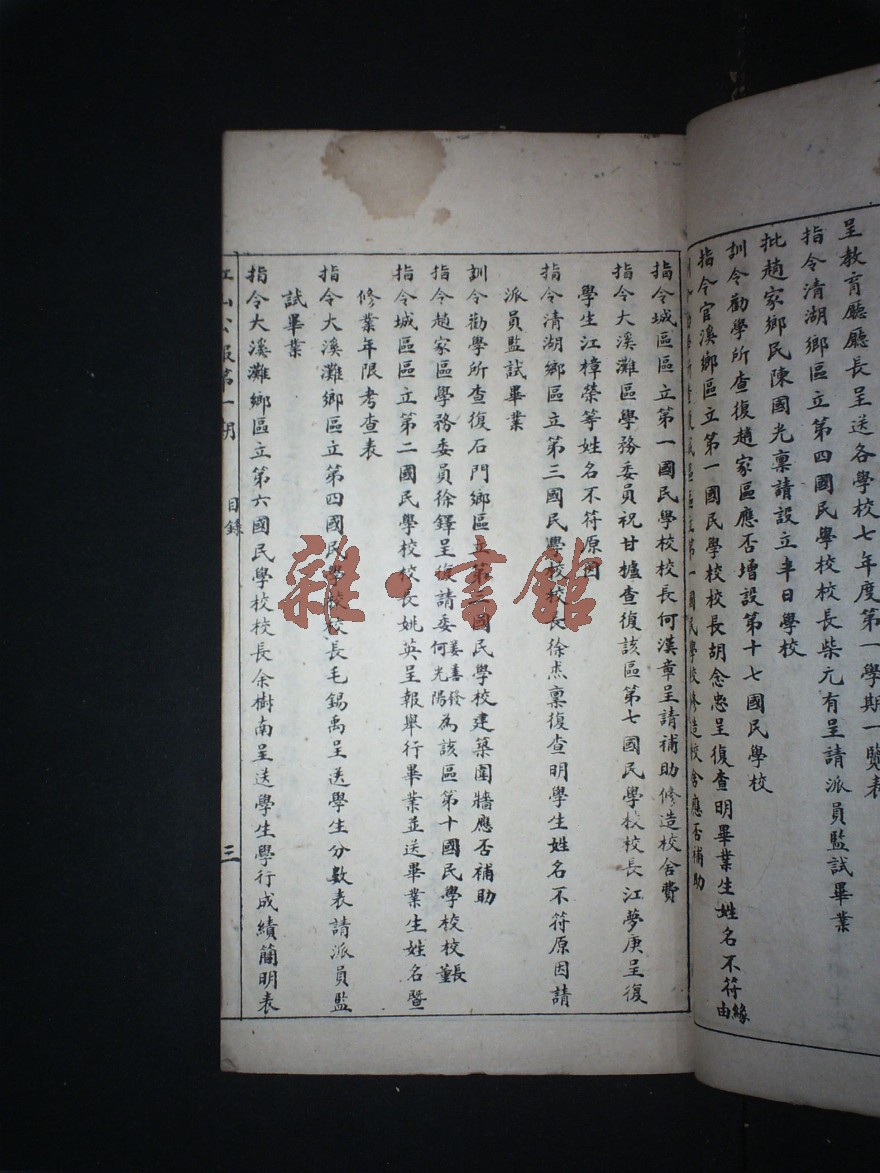 呈教育廳廳長呈送各學校七年度第一學期一覽表
指令清湖鄉區立第四國民學校校長柴元有呈請派員監試畢業
批趙家鄉民陳國光禀請設立半日學校
訓令勸學所查復趙家區應否增設第十七國民學校
指令官溪鄉區立第一國民學校校長胡念忠呈復查明畢業生姓名不符緣由
區立第一國民學校修造校舍應否補助
指令城區區立第一國民學校校長何漢章呈請補助修造校舍費
指令大溪灘區學務委員祝甘攄查復該區第七國民學校校長江夢庚呈復
學生江樟榮等姓名不符原因
指令清湖鄉區立第三國民學校校長徐杰禀復查明學生姓名不符原因請
派員監試畢業
訓令勸學所查復石門鄉區立第三國民學校建築圍牆應否補助
指令趙家區學務委員徐鐸呈復請委姜喜發何光陽為該區第十國民學校校長董
指令城區區立第二國民學校校長姚英呈報舉行畢業並送畢業生姓名暨
修業年限考查表
指令大溪灘鄉區立第四國民學校校長毛錫禹呈送學生分數表請派員監
試畢業
指令大溪灘鄉區立第六國民學校校長余樹南呈送學生學行成績簡明表
江山公報第一期 目錄 三
雜·書館